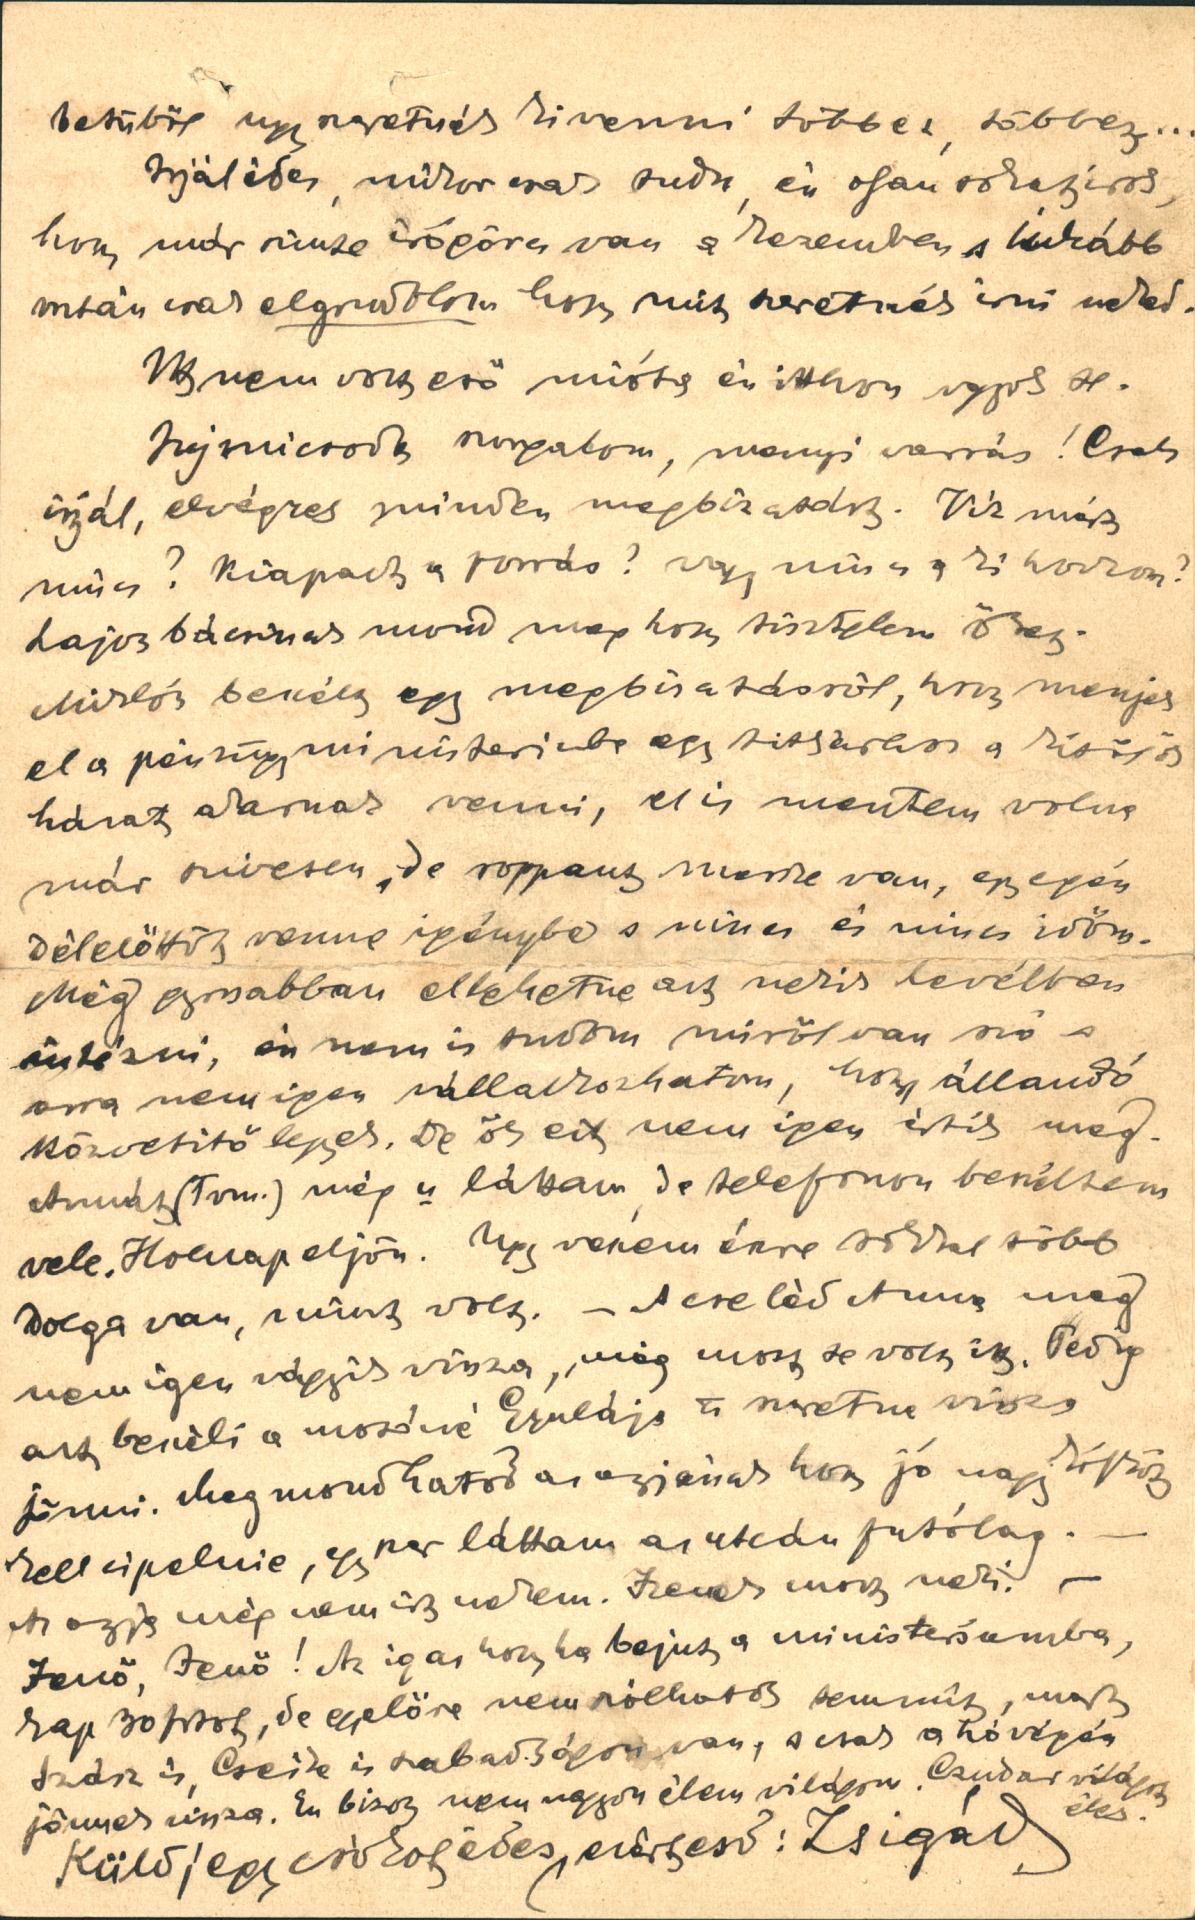 betűből úgy szeretnék kivenni többet, többet...
Irjál édes, mikor csak tudsz, én olyan sokat irok,
hogy már szinte írógörcs van a kezemben s inkább
aztán csak elgondolom hogy mit szeretnék irni neked.
Itt nem volt eső mióta én itthon vagyok se.
hogy micsoda mennyi varrás! Csak
irjál, elvégzek minden megbizatást. Viz már
nincs? Kiapadt a forrás? vagy nincs a ki hordjon?
Lajos bácsinak mond meg hogy tisztelem őket.
Miklós beszélt egy megbizatásról, hogy menjek
el a pénzügyministeriumba egy titkárhoz a
házat akarnak venni, el is mentem volna
már szivesen, de roppant messze van, egy egész
délelőttöt venne igénybe s nincs és nincs időm.
Még gyorsabban ellehetne azt nekik levélben
intézni, én nem is tudom miről van szó s
arra nem igen vállalkozhatom, hogy állandó
közvetitő legyek. De ők ezt nem igen értik meg.
Annát (Tvm.) még n láttam, de telefonon beszéltem
vele. Holnap eljön. Ugy veszem észre sokkal több
dolga van, mint volt. — A cseléd Anna meg
nem igen vágyik vissza, még most se volt itt. Pedig
azt beszéli a mosóné Gyulája is szeretne vissza
jönni. Megmondhatod az anyjának hogy jó nagy
kell cipelnie, egyszer láttam az utcán futólag. —
Az anyja még nem irt nekem. Izenek most neki. —
Jenő, Jenő! Az igaz hogy ha bejut a ministeriumba,
kap 30 frtot, de egyelőre nem szólhatok semmit, mert
Szász is, Cseike is szabadságon van, s csak a hó végén
jönnek vissza. Én bizony nem nagyon élem világom. Csudar világot
élek.
Küldj egy csókot édes, szerető: Zsigád